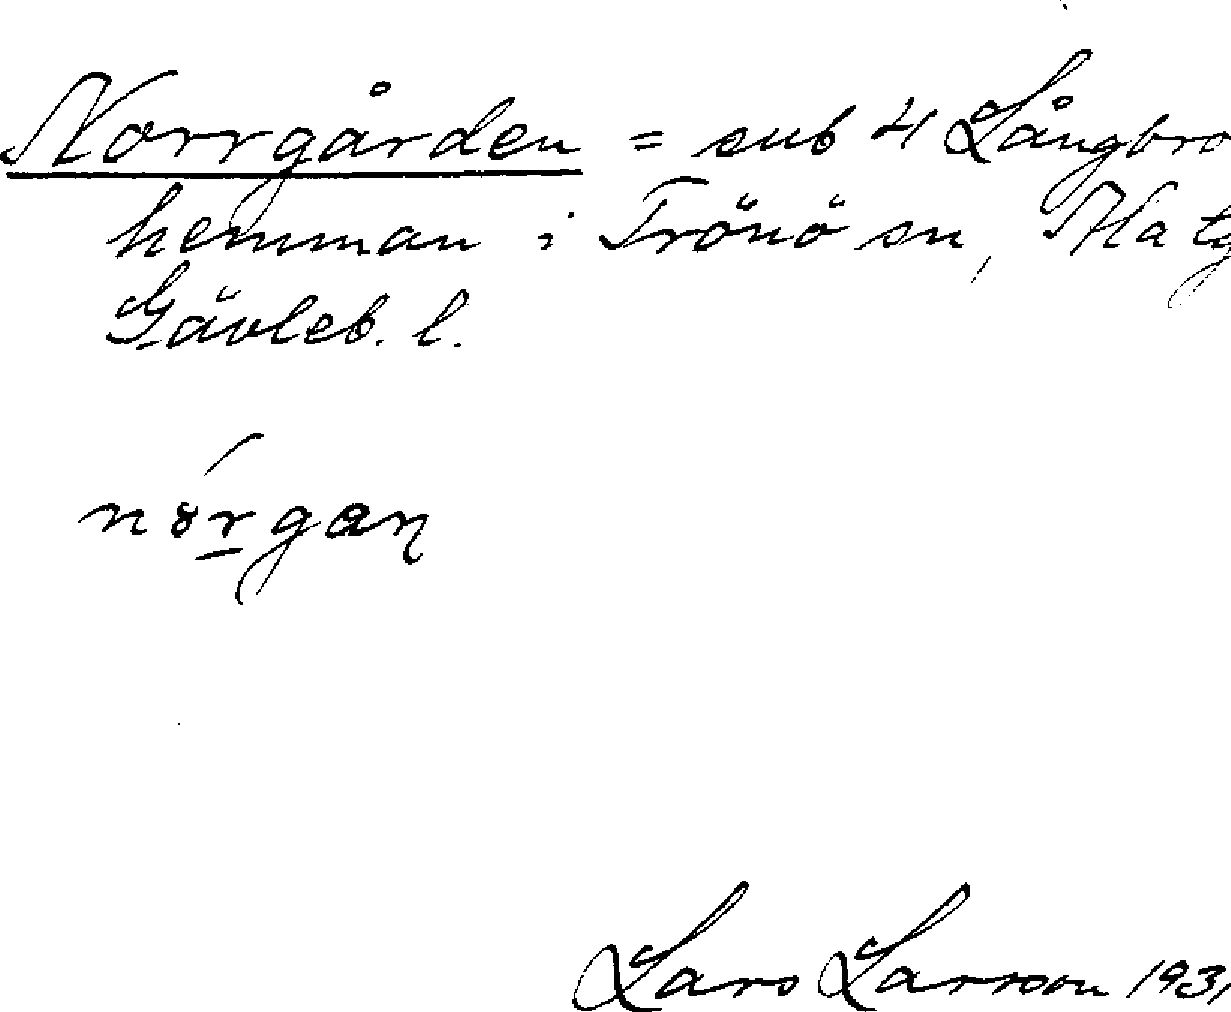 Norrgården = sub 4 Långbro
hemman i Trönö sn,
Gävleb. l.
Lars Larsson 1931